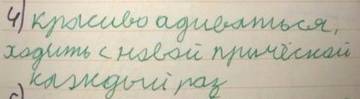 4) красиво адиваться,
ходить с новой причёской
каждый раз
5)